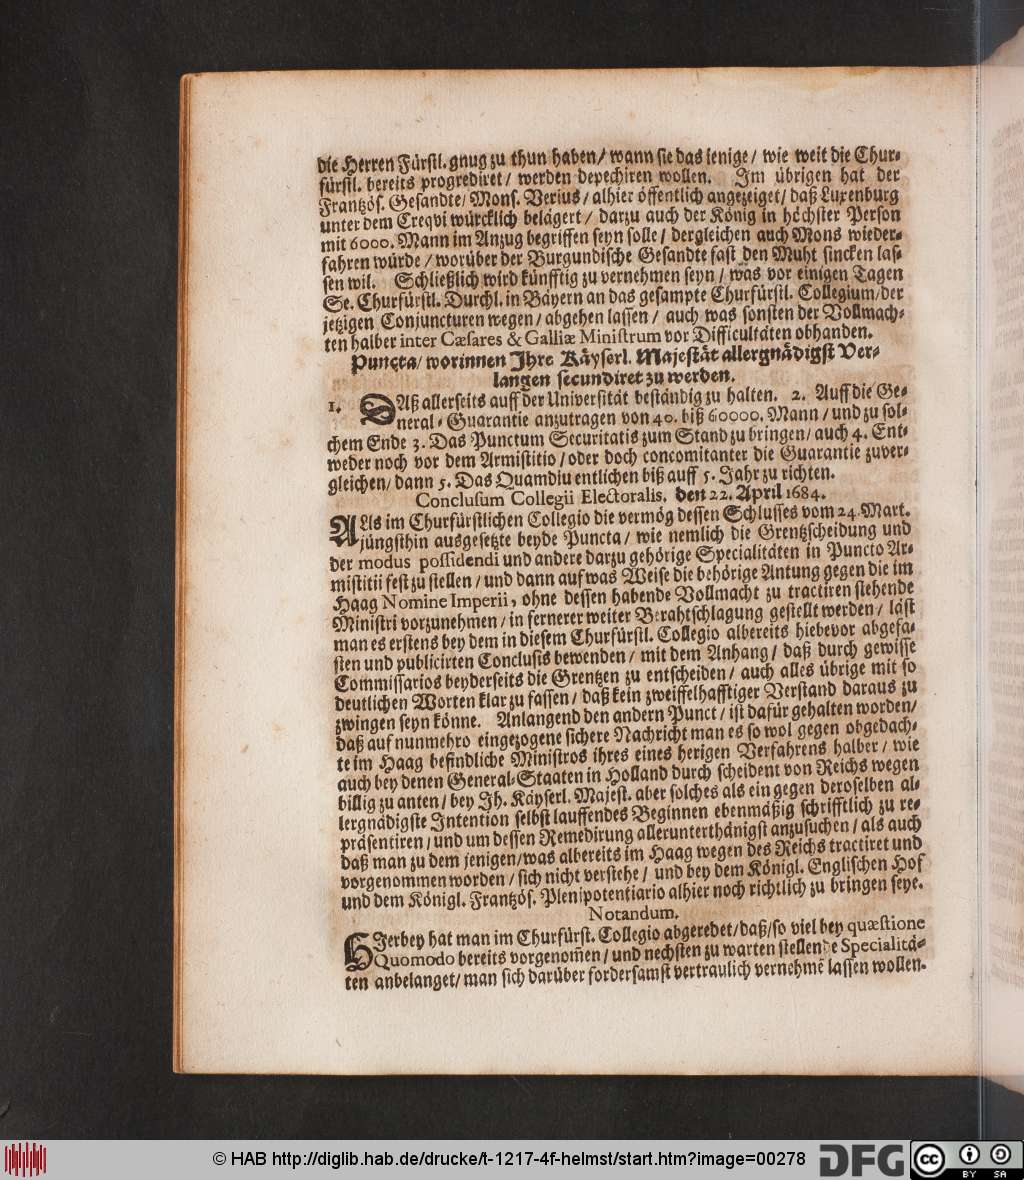 die Herren Fürstl. gnug zu thun haben/ wann sie das ienige/ wie weit die Chur-
fürstl. bereits progrediret/ werden depechiren wollen. Im übrigen hat der
Frantzös. Gesandte/ Mons. Verius/ alhier öffentlich angezeiget/ daß Luxenburg
unter dem Creqvi würcklich belägert/ darzu auch der König in höchster Person
mit 6000. Mann im Anzug begriffen seyn solle/ dergleichen auch Mons wieder-
fahren würde/ worüber der Burgundische Gesandte fast den Muht sincken las-
sen wil. Schließlich wird künfftig zu vernehmen seyn/ was vor einigen Tagen
Se. Churfürstl. Durchl. in Bäyern an das gesampte Churfürstl. Collegium/ der
jetzigen Conjuncturen wegen/ abgehen lassen/ auch was sonsten der Vollmach-
ten halber inter Cæsares & Galliæ Ministrum vor Difficultäten obhanden.
Puncta/ worinnen Ihre Käyserl. Majestät allergnädigst Ver-
langen secundiret zu werden.
1. DAß allerseits auff der Universität beständig zu halten. 2. Auff die Ge-
neral-Guarantie anzutragen von 40. biß 60000. Mann/ und zu sol-
chem Ende 3. Das Punctum Securitatis zum Stand zu bringen/ auch 4. Ent-
weder noch vor dem Armistitio/ oder doch concomitanter die Guarantie zuver-
gleichen/ dann 5. Das Quamdiu entlichen biß auff 5. Jahr zu richten.
Conclusum Collegii Electoralis, den 22. April 1684.
ALs im Churfürstlichen Collegio die vermög dessen Schlusses vom 24. Mart.
jüngsthin ausgesetzte beyde Puncta/ wie nemlich die Grentzscheidung und
der modus possidendi und andere darzu gehörige Specialitäten in Puncto Ar-
mistitii fest zu stellen/ und dann auf was Weise die behörige Antung gegen die im
Haag Nomine Imperii, ohne dessen habende Vollmacht zu tractiren stehende
Ministri vorzunehmen/ in fernerer weiter Berahtschlagung gestellt werden/ läst
man es erstens bey dem in diesem Churfürstl. Collegio albereits hiebevor abgefa-
sten und publicirten Conclusis bewenden/ mit dem Anhang/ daß durch gewisse
Commissarios beyderseits die Grentzen zu entscheiden/ auch alles übrige mit so
deutlichen Worten klar zu fassen/ daß kein zweiffelhafftiger Verstand daraus zu
zwingen seyn könne. Anlangend den andern Punct/ ist dafür gehalten worden/
daß auf nunmehro eingezogene sichere Nachricht man es so wol gegen obgedach-
te im Haag befindliche Ministros ihres eines herigen Verfahrens halber/ wie
auch bey denen General-Staaten in Holland durch scheident von Reichs wegen
billig zu anten/ bey Ih. Käyserl. Majest. aber solches als ein gegen deroselben al-
lergnädigste Intention selbst lauffendes Beginnen ebenmäßig schrifftlich zu re-
präsentiren/ und um dessen Remedirung allerunterthänigst anzusuchen/ als auch
daß man zu dem jenigen/ was albereits im Haag wegen des Reichs tractiret und
vorgenommen worden/ sich nicht verstehe/ und bey dem Königl. Englischen Hof
und dem Königl. Frantzös. Plenipotentiario alhier noch richtlich zu bringen seye.
Notandum.
HIerbey hat man im Churfürst. Collegio abgeredet/ daß/ so viel bey quæstione
Quomodo bereits vorgenom̃en/ und nechsten zu warten stellende Specialitä-
ten anbelanget/ man sich darüber fordersamst vertraulich vernehmẽ lassen wollen.
© HAB http://diglib.hab.de/drucke/t-1217-4f-helmst/start.htm?image=00278
DFG
cc BY SA